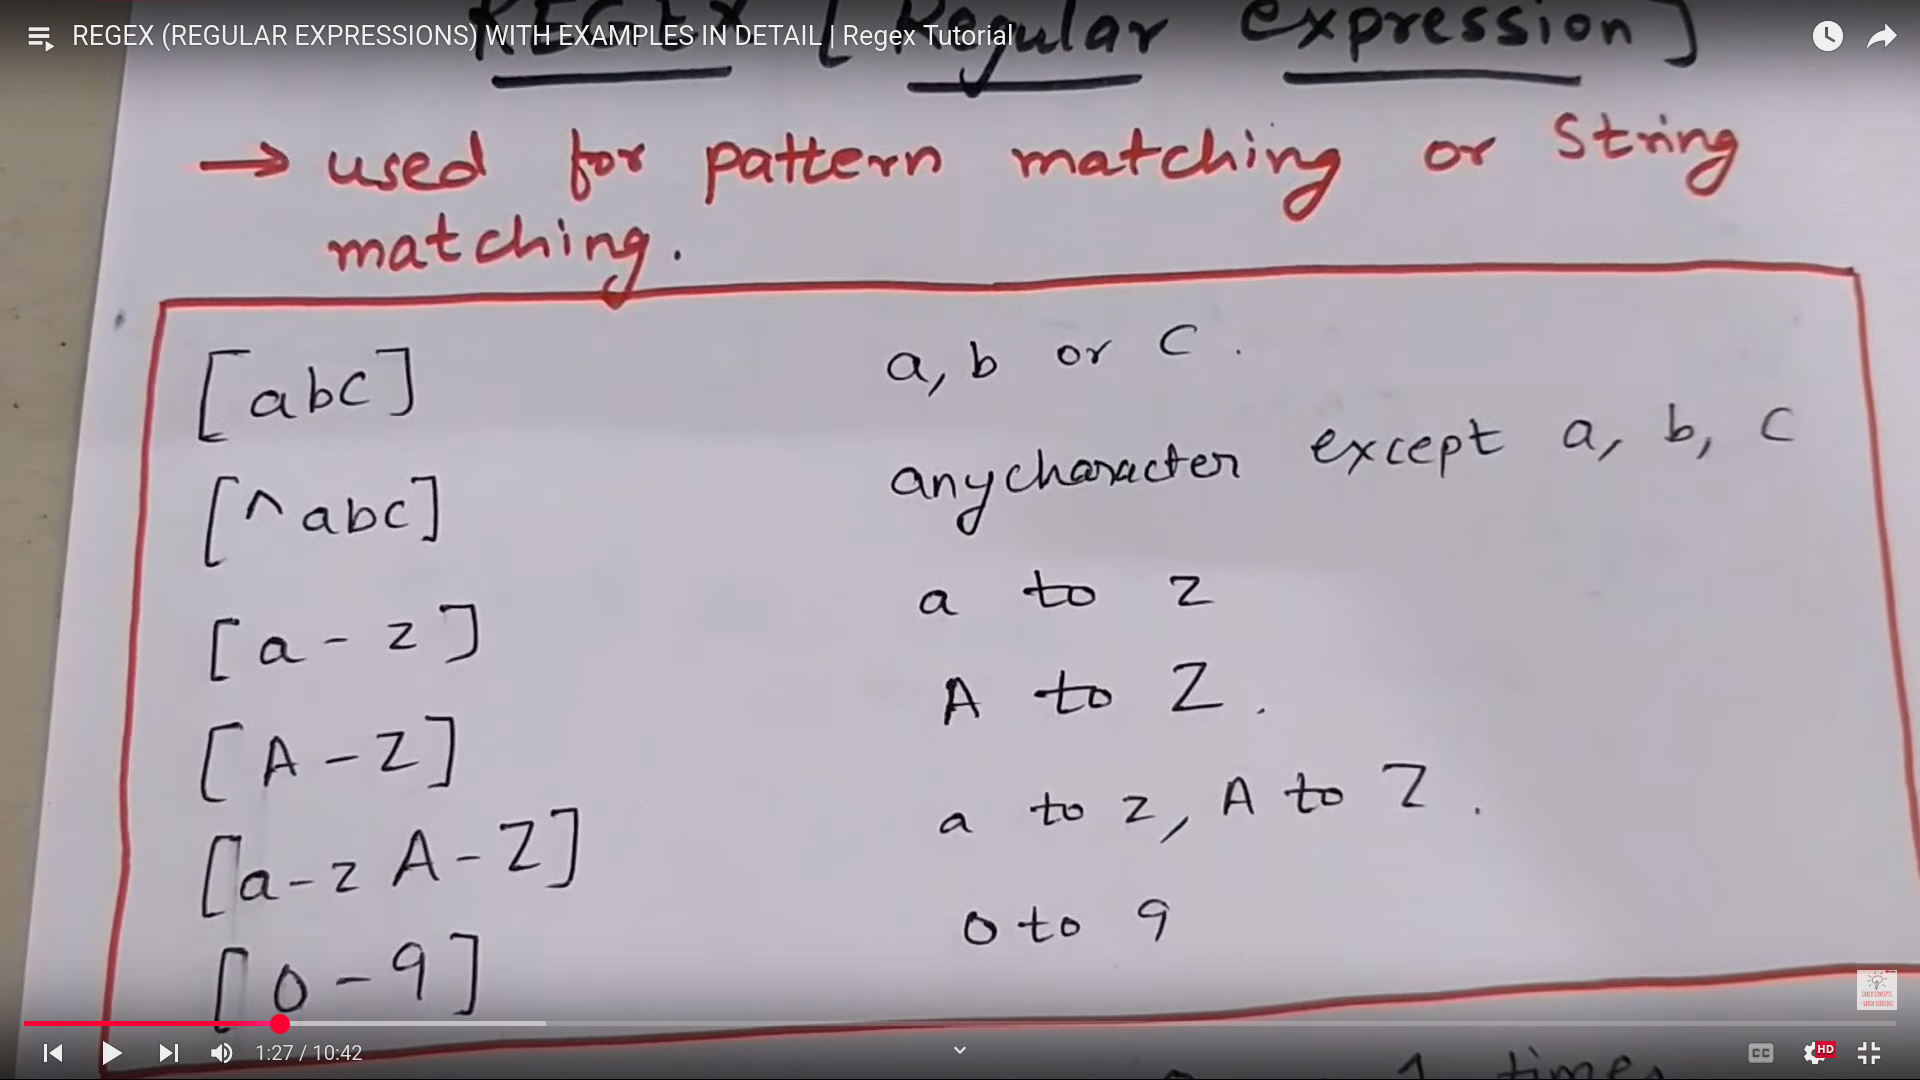 REGEX (REGULAR EXPRESSIONS) WITH EXAMPLES IN DETAIL | Regex Tutorial
REGEX [Regular Expression]
→ used for pattern matching or String
matching.
[abc] a, b or c.
[^abc] any character except a, b, c
[a-z] a to z
[A-Z] A to Z.
[a-z A-Z] a to z, A to Z.
[0-9] 0 to 9
1:27 / 10:42
CC HD
1 times